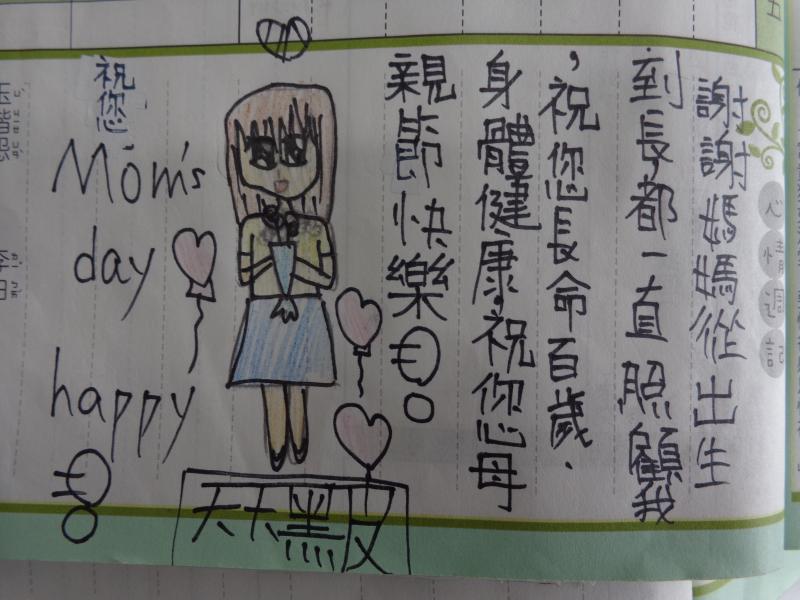 五
心情週記
謝謝媽媽從出生
到長都一直照顧我
，祝您長命百歲.
身體健康.祝您母
親節快樂
天天黑皮
祝您
Mom's
day
happy